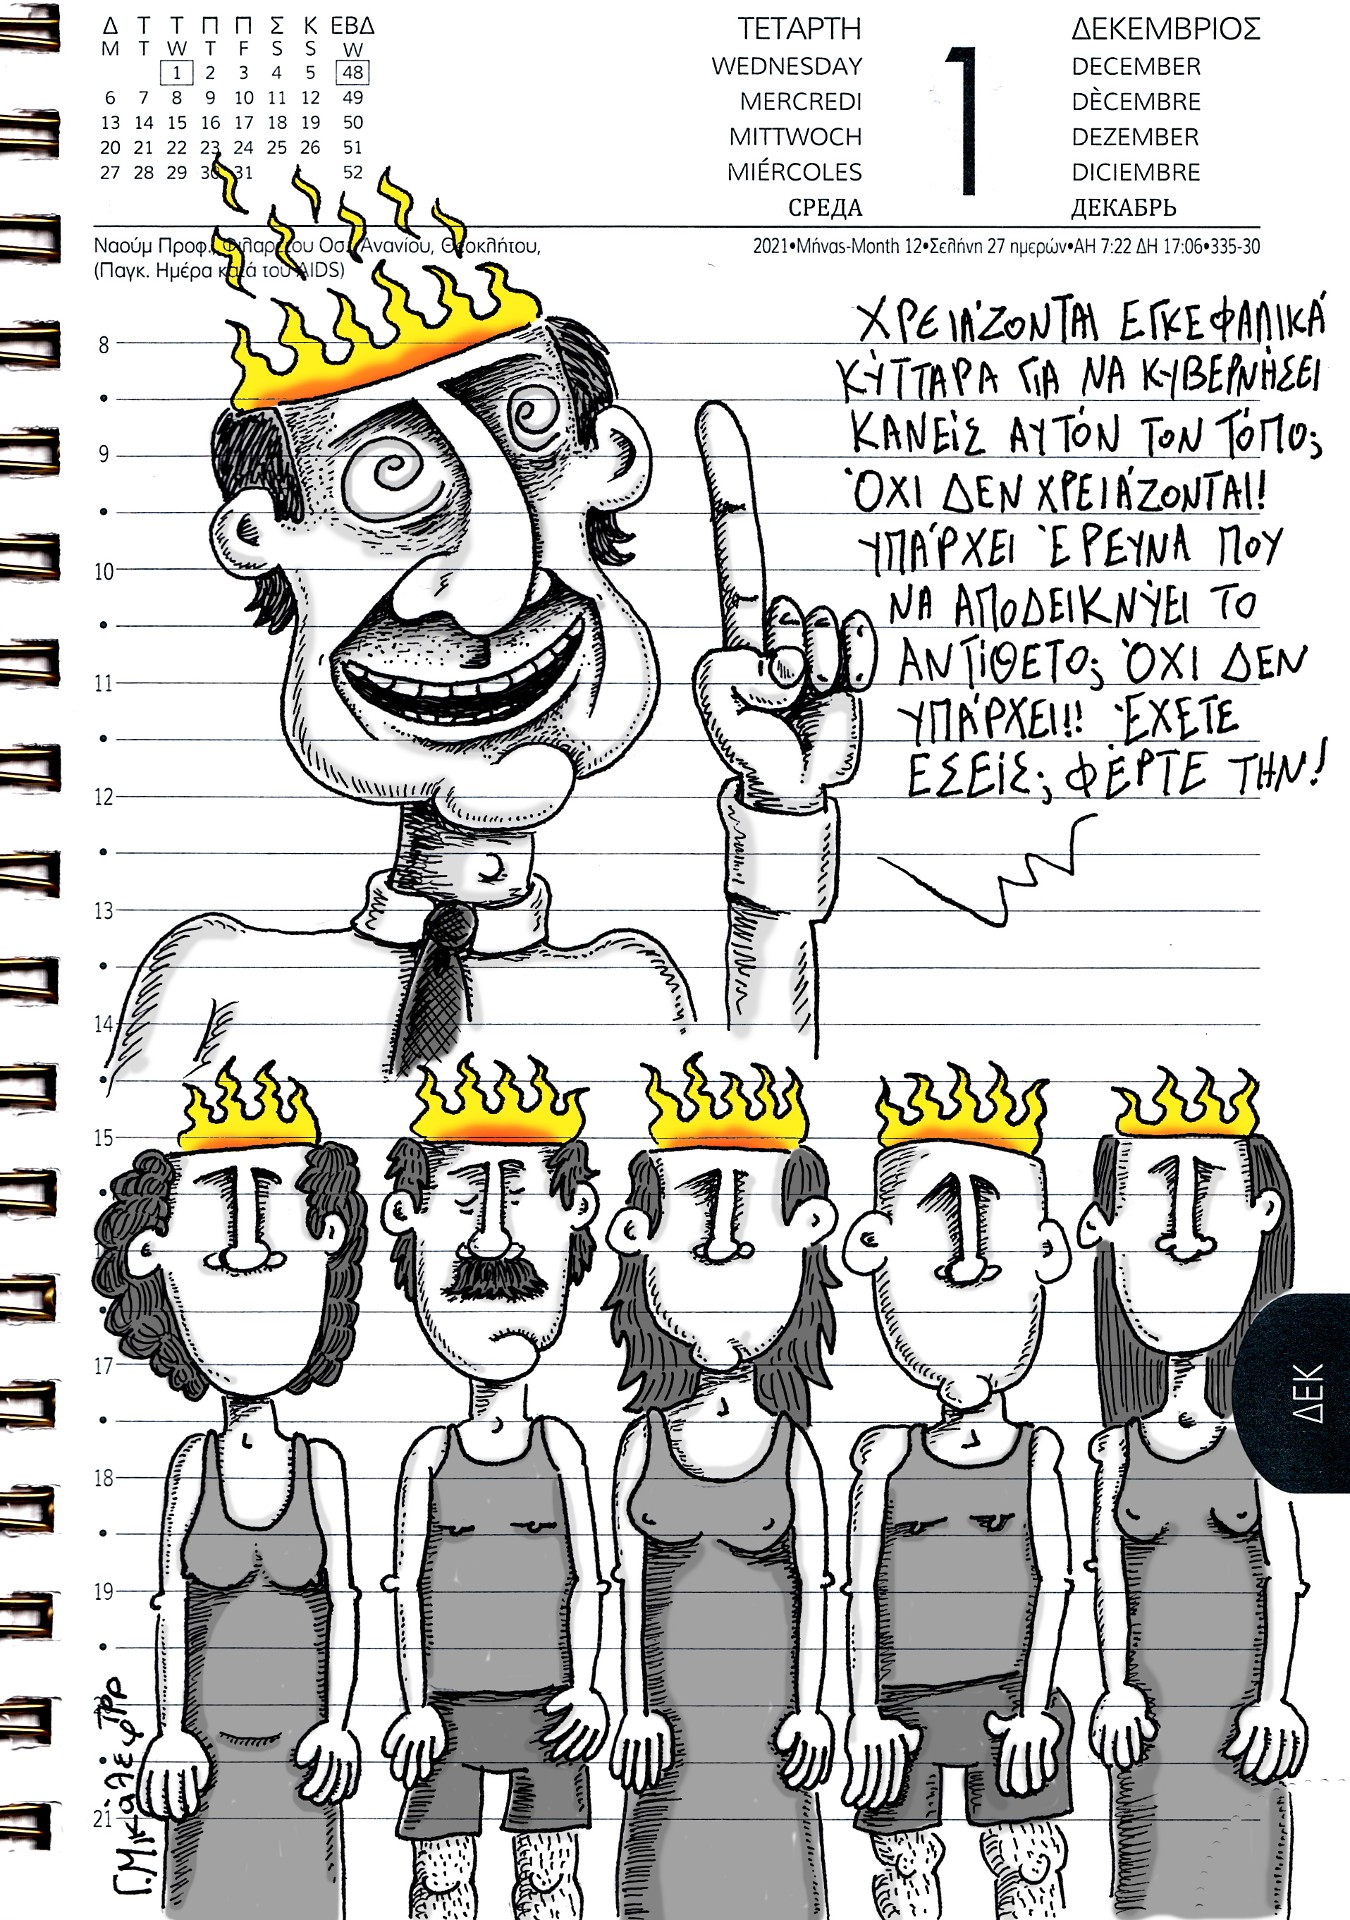 Δ Τ Τ Π Π Σ Κ ΕΒΔ
M T W T F S S W
1 2 3 4 5 48
6 7 8 9 10 11 12 49
13 14 15 16 17 18 19 50
20 21 22 23 24 25 26 51
27 28 29 30 31 52
ΤΕΤΑΡΤΗ
WEDNESDAY
MERCREDI
MITTWOCH
MIÉRCOLES
СРЕДА
1
ΔΕΚΕΜΒΡΙΟΣ
DECEMBER
DÈCEMBRE
DEZEMBER
DICIEMBRE
ДЕКАБРЬ
Ναούμ Προφ., Φιλαρέτου Οσ., Ανανίου, Θεοκλήτου,
(Παγκ. Ημέρα κατά του AIDS)
2021•Μήνας-Month 12•Σελήνη 27 ημερών•ΑΗ 7:22 ΔΗ 17:06•335-30
ΧΡΕΙΆΖΟΝΤΑΙ ΕΓΚΕΦΑΛΙΚΆ
ΚΎΤΤΑΡΑ ΓΙΑ ΝΑ ΚΥΒΕΡΝΉΣΕΙ
ΚΑΝΕΊΣ ΑΥΤΌΝ ΤΟΝ ΤΌΠΟ;
ΌΧΙ ΔΕΝ ΧΡΕΙΆΖΟΝΤΑΙ!
ΥΠΆΡΧΕΙ ΈΡΕΥΝΑ ΠΟΥ
ΝΑ ΑΠΟΔΕΙΚΝΎΕΙ ΤΟ
ΑΝΤΊΘΕΤΟ; ΌΧΙ ΔΕΝ
ΥΠΆΡΧΕΙ!! ΈΧΕΤΕ
ΕΣΕΊΣ; ΦΈΡΤΕ ΤΗΝ!
8
9
10
11
12
13
14
15
17
18
19
20
21
ΔΕΚ
Γ. Μικάλεφ